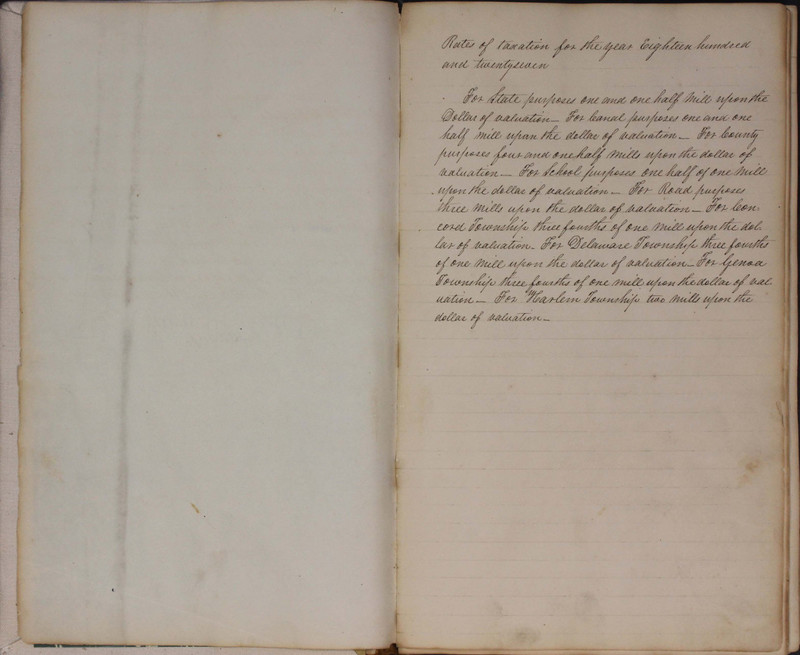 Rates of taxation for the year Eighteen hundred
and twentyseven
For State purposes one and one half Mill upon the
Dollar of valuation — For Canal purposes one and one
half Mill upon the dollar of valuation — For County
purposes four and one half Mills upon the dollar of
valuation — For School purposes one half of one Mill
upon the dollar of valuation — For Road purposes
three Mills upon the dollar of valuation — For Con
cord Township three fourths of one Mill upon the dol
lar of valuation. For Delaware Township three fourths
of one Mill upon the dollar of valuation — For Genoa
Township three fourths of one Mill upon the dollar of val
uation — For Harlem Township two Mills upon the
dollar of valuation —